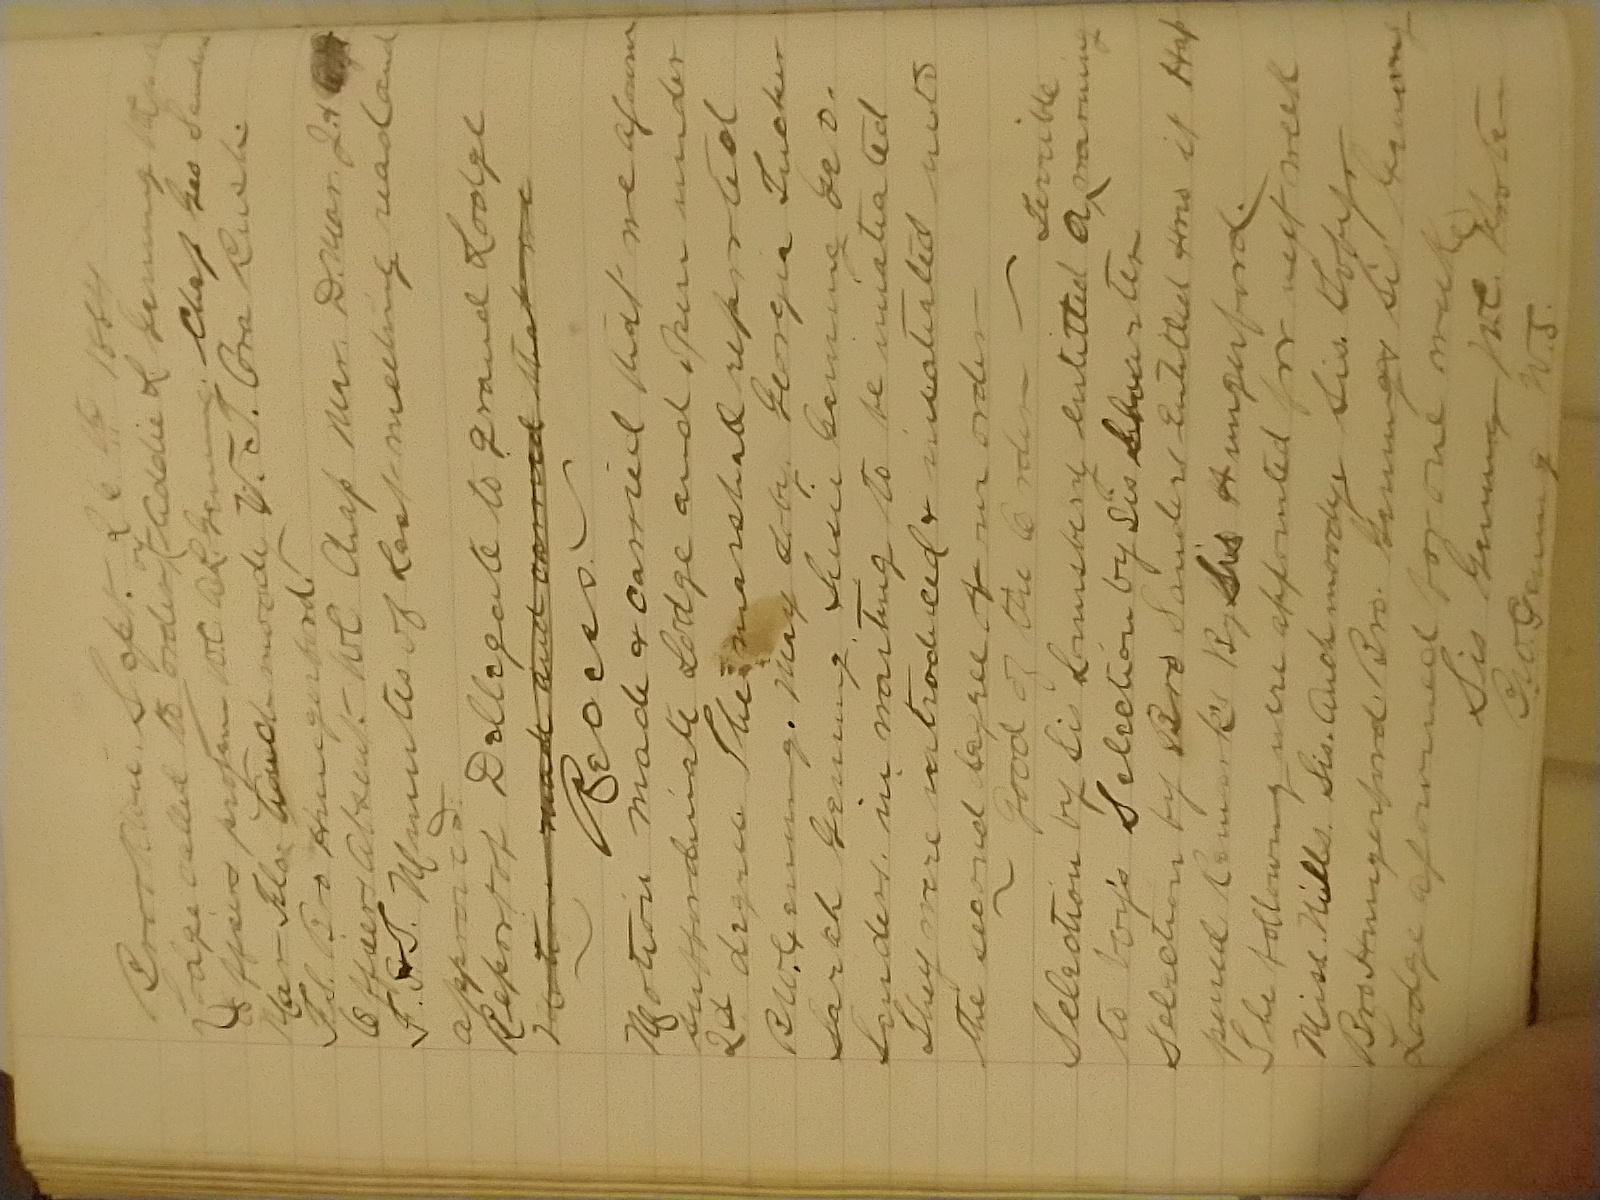 Sept. 26th 1884
Lodge called to order by Addie L Genung
Officers protem W.C. A.L. Genung. Chap Geo Sanders
Mar Flo moody V.T. Ora Rush
F.S. Bro Hungerford
Officers Absent W.C. Chap Mar. D. Mar. J. &
F.S. & T. Minutes of Last meeting read and
approved.
Report of Dellegate to grand Lodge
Motion made and carried that we
~ Recess. ~
Motion made & carried that we ajourn
subbordinate Lodge and open under
2d degree The marshal reported
Bro. Genung. May Loby. Georgia Tucker
Sarah Genung Susie Genung Geo.
Sanders. in waiting to be iniatiated
They were introduced & iniatiated unto
the second degree of our order
~ Good of the Order ~
Selection by Sis Lounsbery entitled A Terrible warning
to boy's Selection by Sis
Selection by Bro Sanders Entitled How it Hap
pened Remarks By Sis Hungerford.
The following were appointed for next week
Miss. Nills. Sis. moody. Sis.
Bro Hungerford. Bro. Genung & Sis Genung
Lodge ajourned for one week
Sis Genung W.C. Protem
Bro. Genung W.S.